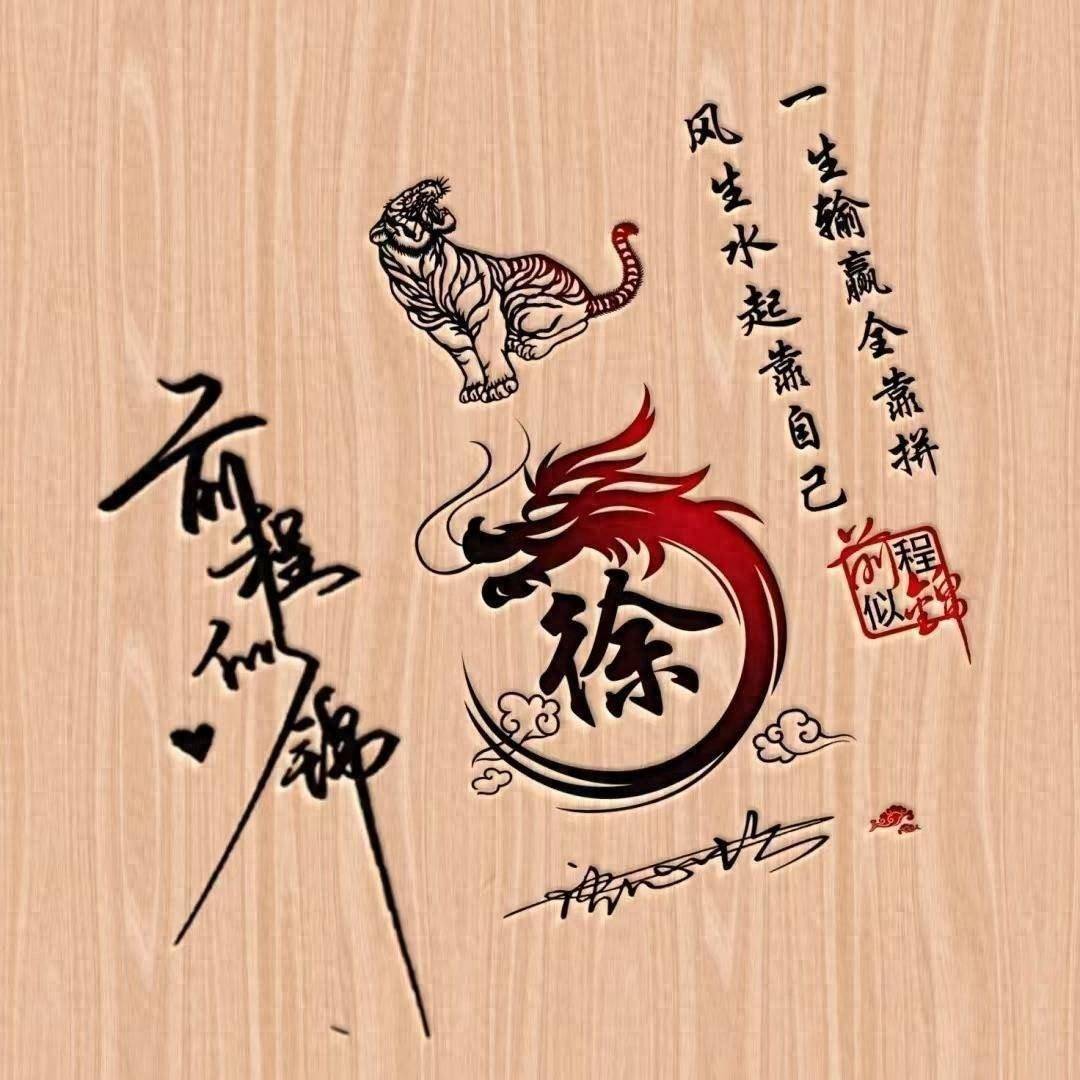 一生输赢全靠拼
风生水起靠自己
前程似锦
徐
前程似锦